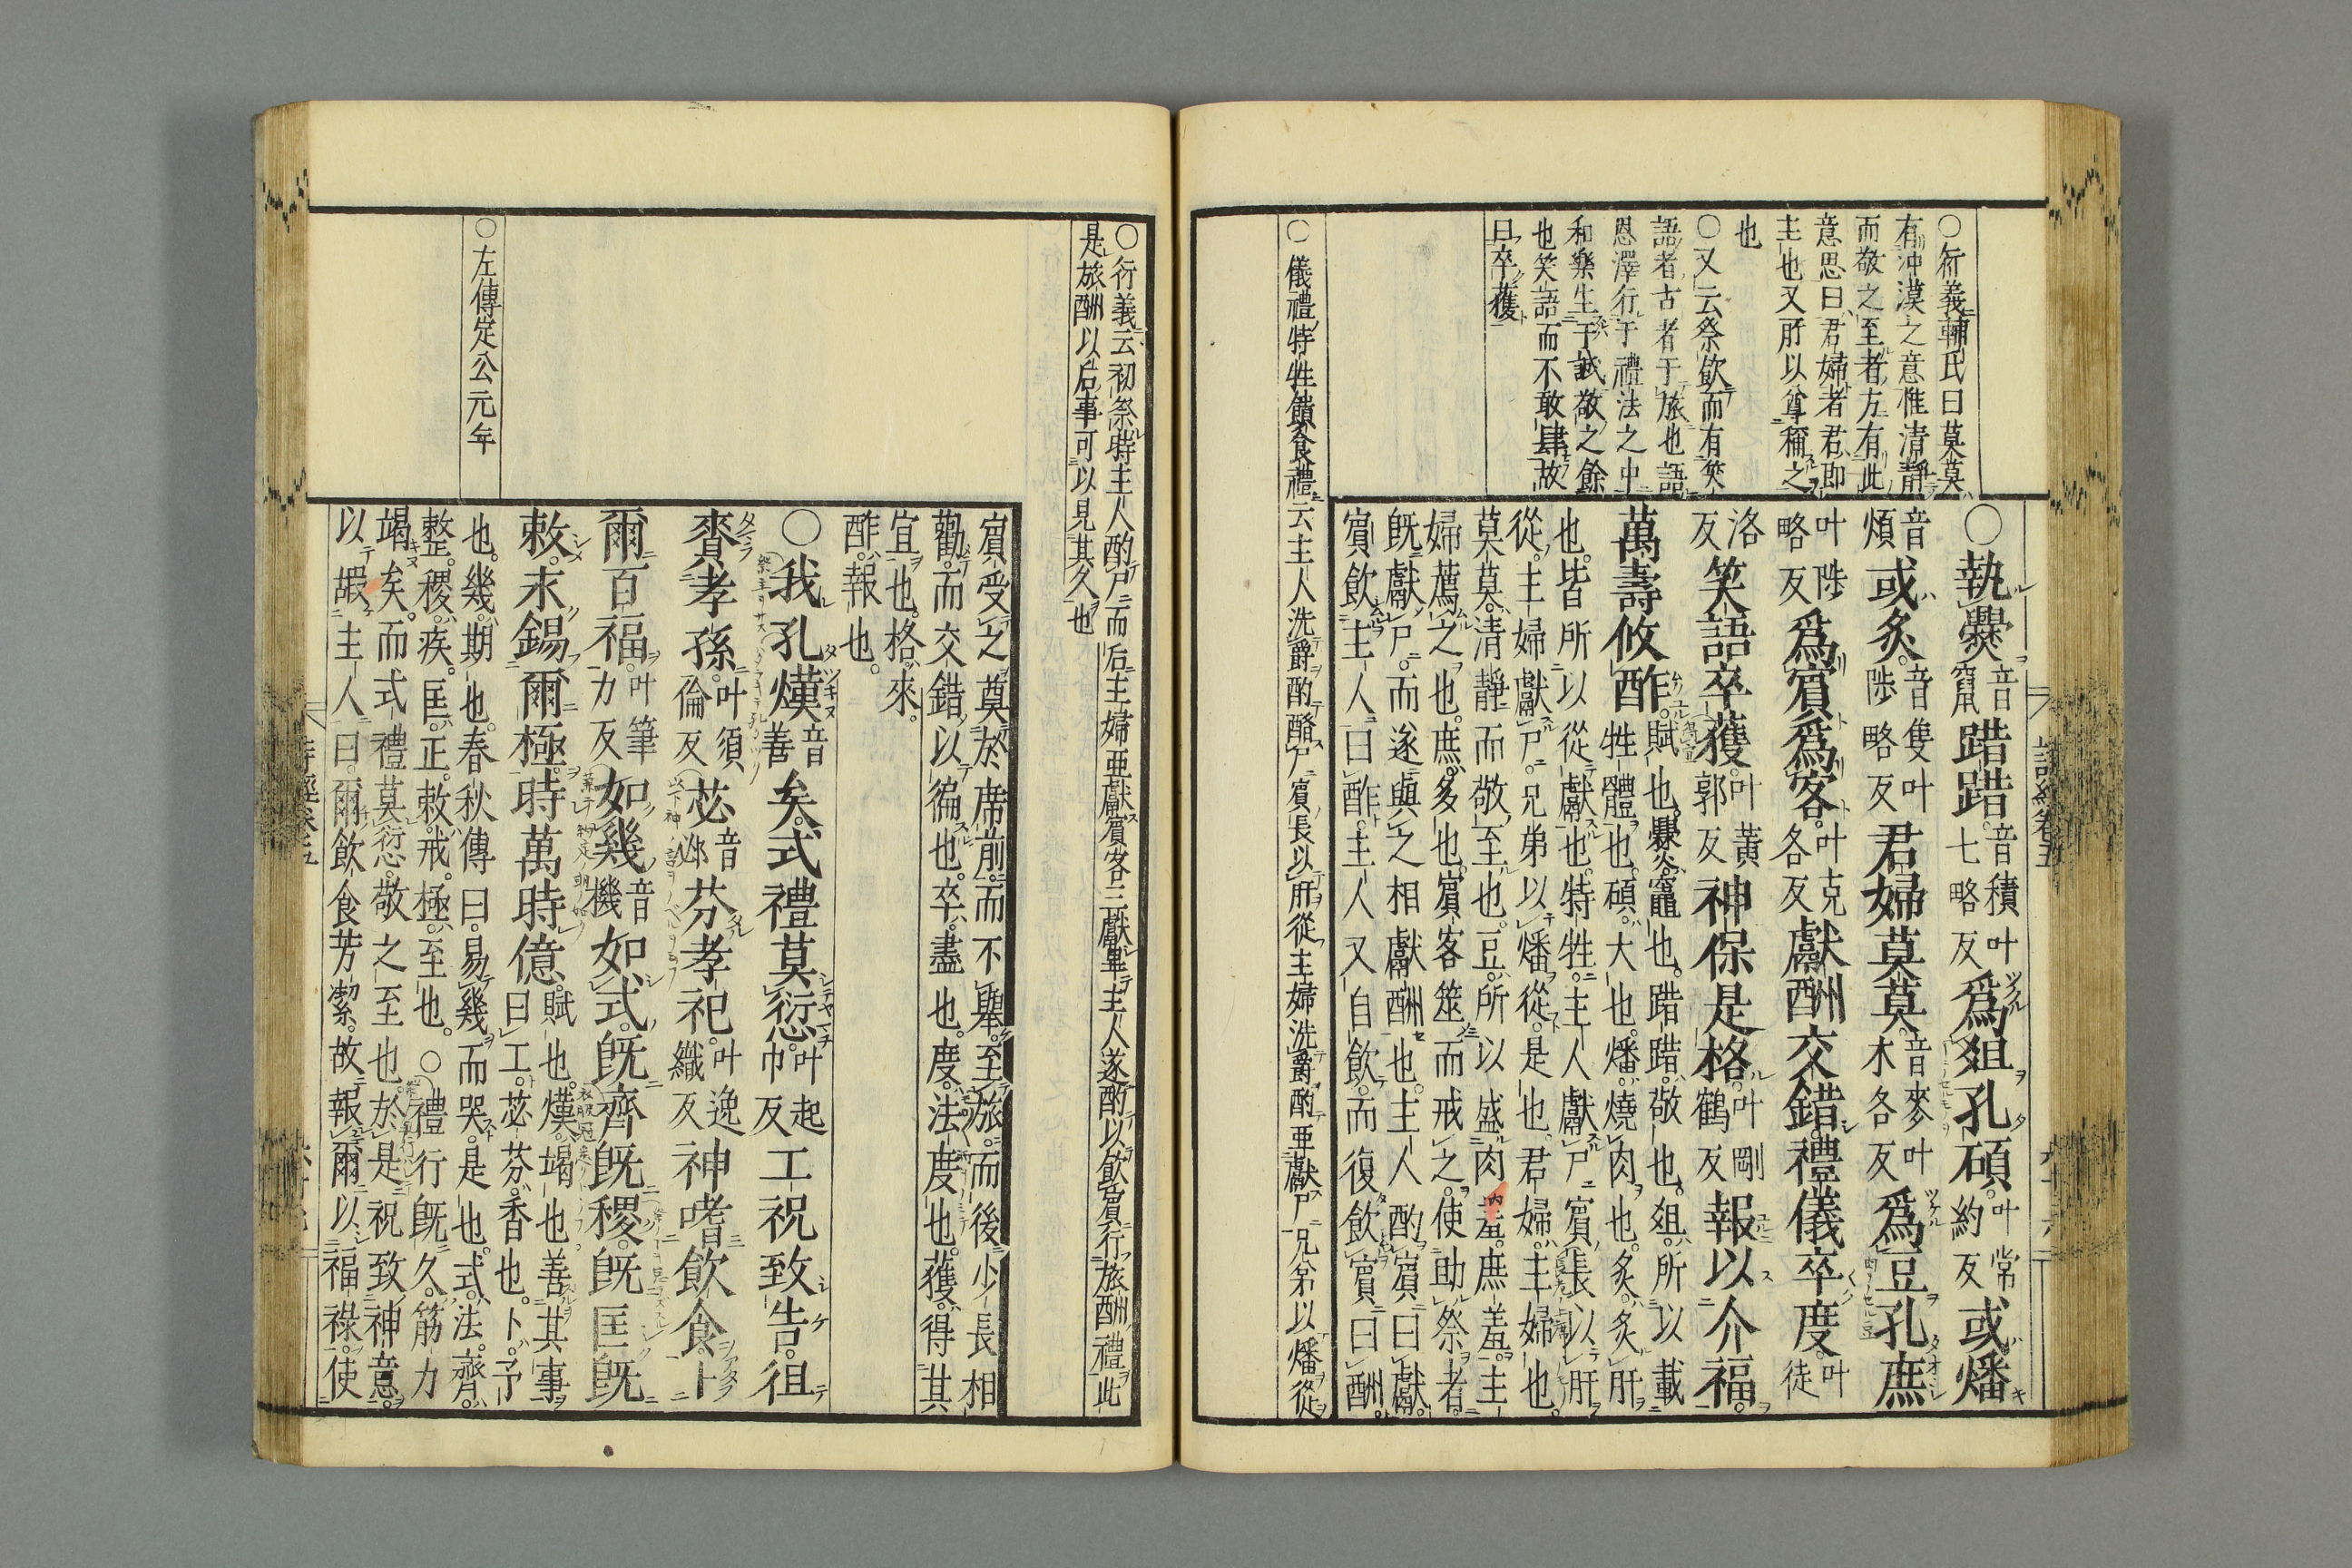 〇衍義輔氏曰莫莫
有沖漠之意惟清靜
而敬之至者方有此
意思曰君婦者君即
主也又所以尊稱之
也
〇又云祭飲而有笑
語者古者于旅也語
恩澤行于禮法之中
和樂生于誠敬之餘
也笑語而不敢肆故
曰卒獲
〇執爨音竄踖踖音積叶七略反爲俎孔碩叶常約反或燔
音煩或炙音隻叶陟略反君婦莫莫音麥叶木各反爲豆孔庶
叶陟略反爲賓爲客叶克各反獻酬交錯禮儀卒度叶徒
洛反笑語卒獲叶黃郭反神保是格叶剛鶴反報以介福
萬壽攸酢賦也爨竈也踖踖敬也俎所以載
牲體也碩大也燔燒肉也炙炙肝
也皆所以從獻也特牲主人獻尸賓長以肝
從主婦獻尸兄弟以燔從是也君婦主婦也
莫莫清靜而敬至也豆所以盛肉羞庶羞主
婦薦之也庶多也賓客筮而戒之使助祭者
既獻尸而遂與之相獻酬也主人酌賓曰獻
賓飲主人曰酢主人又自飲而復飲賓曰酬
〇儀禮特牲饋食禮云主人洗爵酌酳尸賓長以肝從主婦洗爵酌亞獻尸兄弟以燔從
詩經卷五
〇衍義云初祭時主人酌尸而后主婦亞獻賓客三獻畢主人遂酌以飲賓行旅酬禮此
是旅酬以后事可以見其久也
賓受之奠於席前而不舉至旅而後少長相
勸而交錯以徧也卒盡也度法度也獲得其
宜也格來
酢報也
〇我孔熯音善矣式禮莫愆叶起巾反工祝致告徂
賚孝孫叶須倫反苾音邲芬孝祀叶逸織反神嗜飲食卜
爾百福叶筆力反如幾音機如式既齊既稷既匡既
敕永錫爾極時萬時億賦也熯竭也善其事曰工苾芬香也卜予
也幾期也春秋傳曰易幾而哭是也式法齊
整稷疾匡正敕戒極至也〇禮行既久筋力
竭矣而式禮莫愆敬之至也於是祝致神意
以嘏主人曰爾飲食芳潔故報爾以福祿使
〇左傳定公元年
詩經卷之五